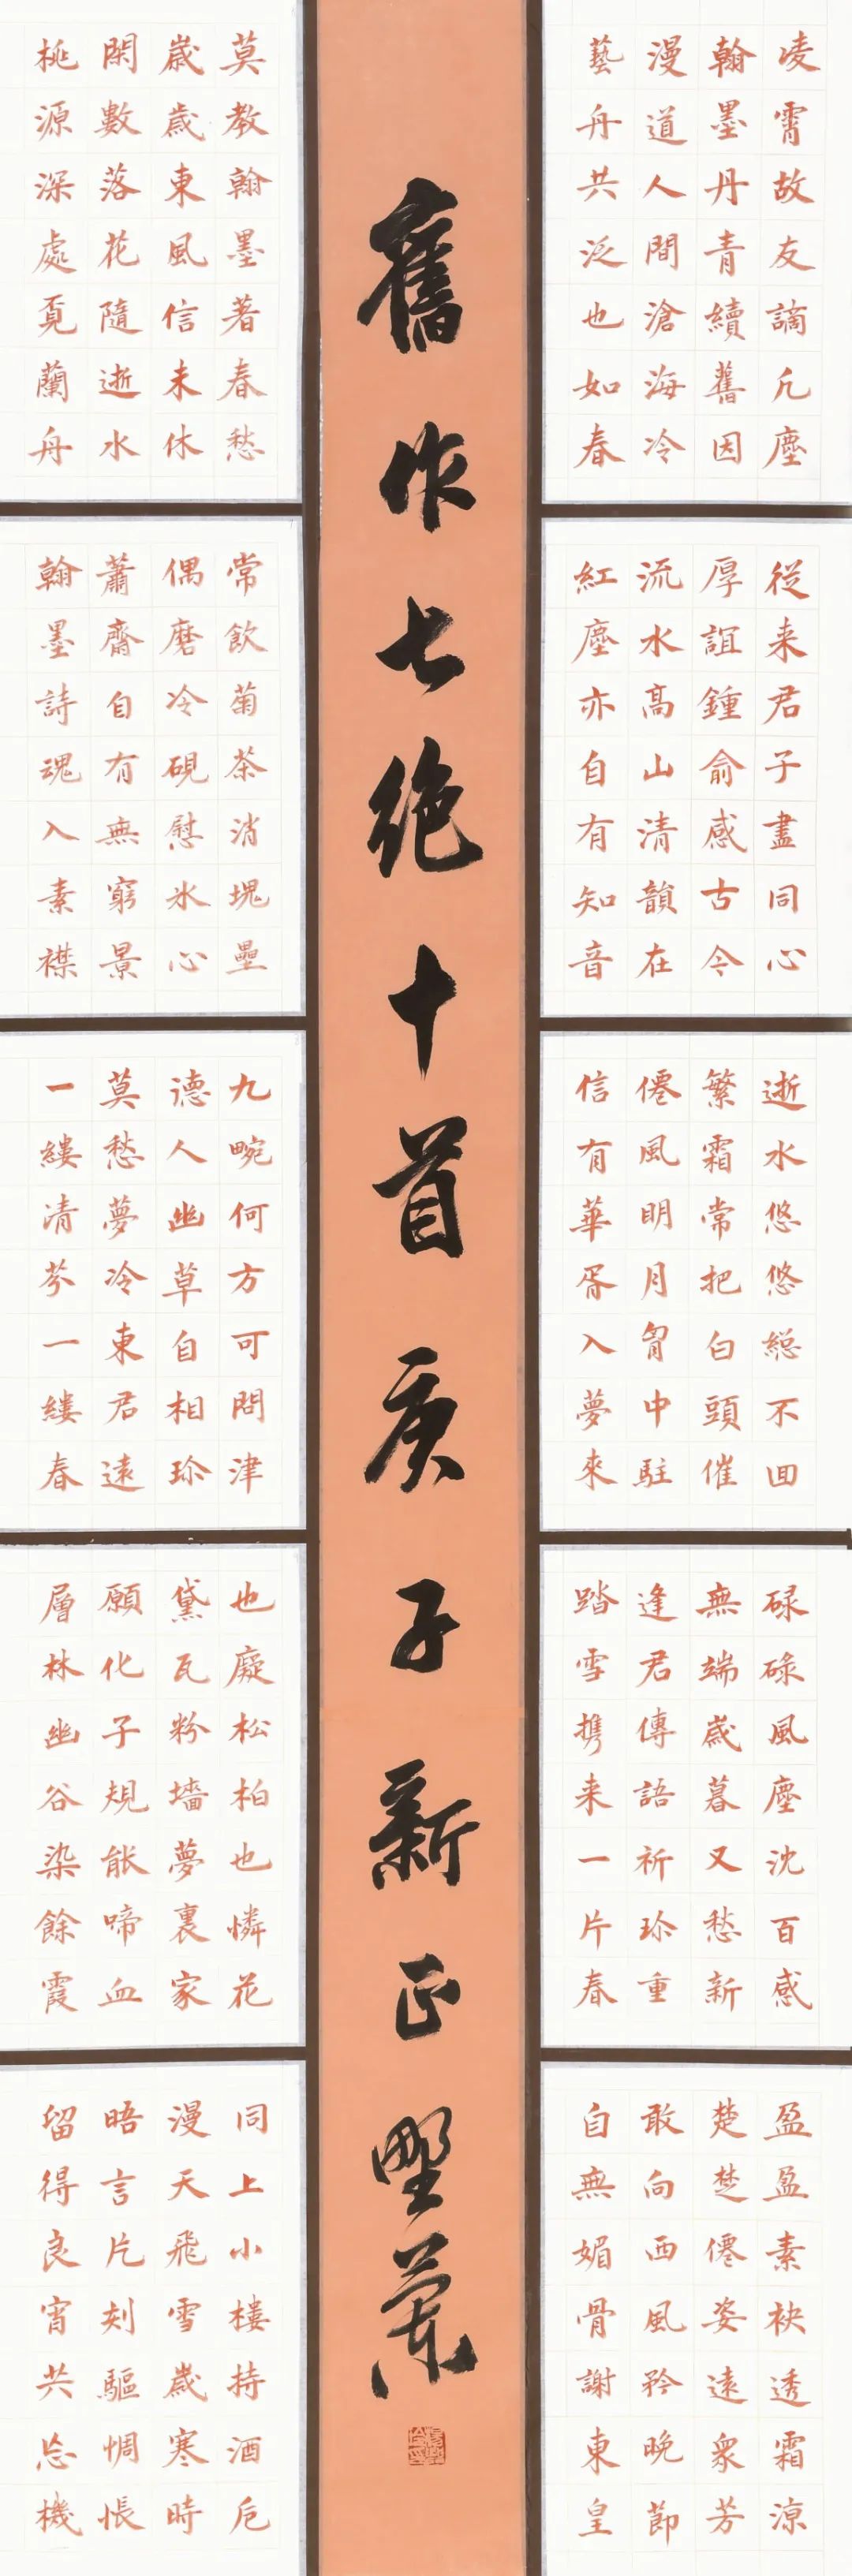 凌霄故友謫凡塵
翰墨丹青續舊因
漫道人間滄海冷
藝舟共泛也如春
從来君子盡同心
厚誼鍾俞感古今
流水高山清韻在
紅塵亦自有知音
逝水悠悠總不回
繁霜常把白頭催
僊風明月胷中駐
信有華胥入夢來
碌碌風塵沈百感
無端歲暮又愁新
逢君傳語祈珍重
踏雪携来一片春
盈盈素袂透霜涼
楚楚僊姿遠衆芳
敢向西風矜晚節
自無媚骨謝東皇
舊作七絕十首庚子新正野蘭
莫教翰墨著春愁
歲歲東風信未休
閑數落花隨逝水
桃源深處覓蘭舟
常飲菊茶消塊壘
偶磨冷硯慰氷心
蕭齋自有無窮景
翰墨詩魂入素襟
九畹何方可問津
德人幽草自相珍
莫愁夢冷東君遠
一縷清芬一縷春
也癡松柏也憐花
黛瓦粉墻夢裏家
願化子規能啼血
層林幽谷染餘霞
同上小樓持酒卮
漫天飛雪歲寒時
晤言片刻驅惆悵
留得良宵共忘機